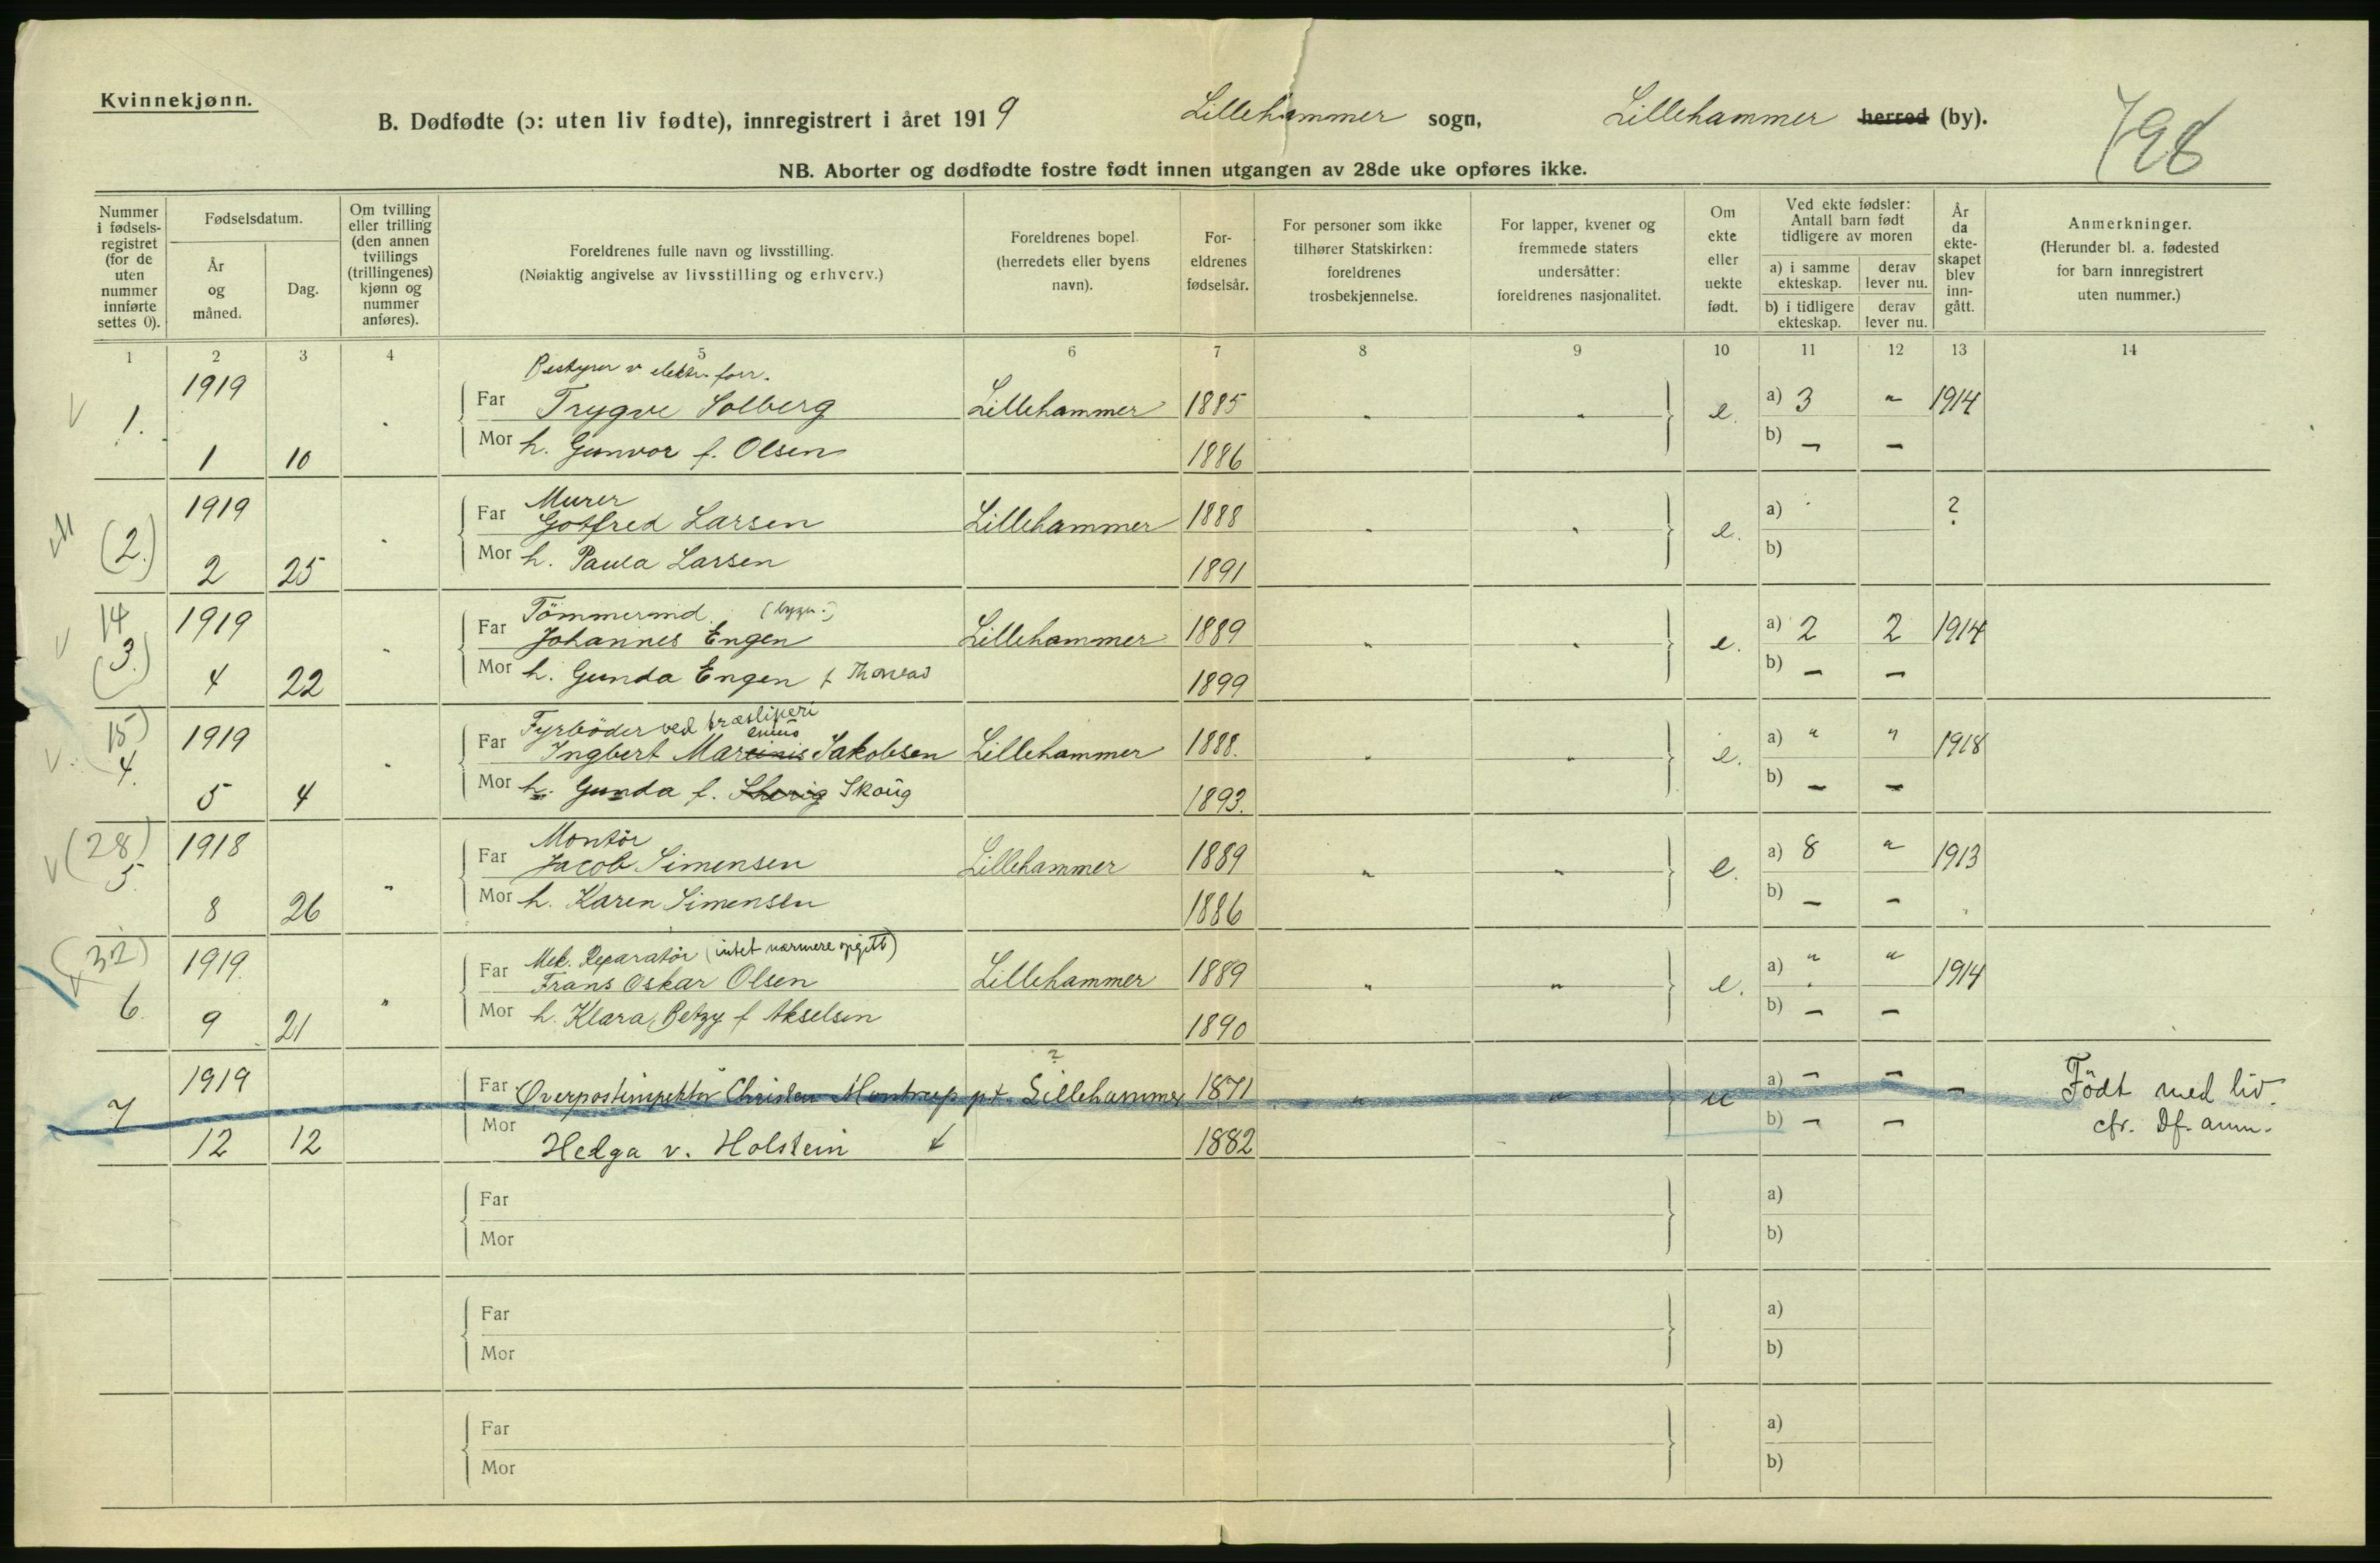 Kvinnekjønn.
B. Dødfødte (ɔ: uten liv fødte), innregistrert i året 1919 Lillehammer sogn, Lillehammer herred (by).
798
NB. Aborter og dødfødte fostre født innen utgangen av 28de uke opføres ikke.
Nummer i fødsels-registret (for de uten nummer innførte settes 0).
Fødselsdatum.
År og måned.
Dag.
Om tvilling eller trilling (den annen tvillings (trillingenes) kjønn og nummer anføres).
Foreldrenes fulle navn og livsstilling.
(Nøiaktig angivelse av livsstilling og erhverv.)
Foreldrenes bopel (herredets eller byens navn).
For-eldrenes fødselsår.
For personer som ikke tilhører Statskirken: foreldrenes trosbekjennelse.
For lapper, kvener og fremmede staters undersåtter: foreldrenes nasjonalitet.
Om ekte eller uekte født.
Ved ekte fødsler: Antall barn født tidligere av moren
a) i samme ekteskap. derav lever nu.
b) i tidligere ekteskap. derav lever nu.
År da ekte-skapet blev inn-gått.
Anmerkninger.
(Herunder bl. a. fødested for barn innregistrert uten nummer.)
1 2 3 4 5 6 7 8 9 10 11 12 13 14
Bestyrer v elektr. forr.
1. 1919 Far Trygve Solberg Lillehammer 1885 " " e. a) 3 " 1914
1 10 Mor h. Gunvor f. Olsen 1886 b) – –
Murer
(2.) 1919 Far Gotfred Larsen Lillehammer 1888 " " e. a) ?
2 25 Mor h. Paula Larsen 1891 b)
Tömmermd. (bygn.)
14 (3.) 1919 Far Johannes Engen Lillehammer 1889 " " e. a) 2 2 1914
4 22 Mor h. Gunda Engen f 1899 b) – –
Fyrbøder ved træsliperi
15) 4. 1919 Far Ingbert Mar Jakobsen Lillehammer 1888. " " e. a) " " 1918
5 4 Mor h. Gunda f. Skoug 1893. b) – –
Montör
(28) 5. 1918 Far Jacob Simensen Lillehammer 1889 " " e. a) 8 " 1913
8 26 Mor h. Karen Simensen 1886 b) – –
Mek. Reparatör (intet nærmere opgitt)
(32) 6. 1919. Far Frans Oskar Olsen Lillehammer 1889 " " e. a) " " 1914
9 21 Mor h. Klara Betzy f Akselsen 1890 b) – –
?
7 1919 Far Overpostinspektör Christen Montrup p.t. Lillehammer 1871 " " u a) – – – Födt med liv.
12 12 Mor Helga v. Holstein 1882 b) – – cfr. Df. anm.
Far a)
Mor b)
Far a)
Mor b)
Far a)
Mor b)